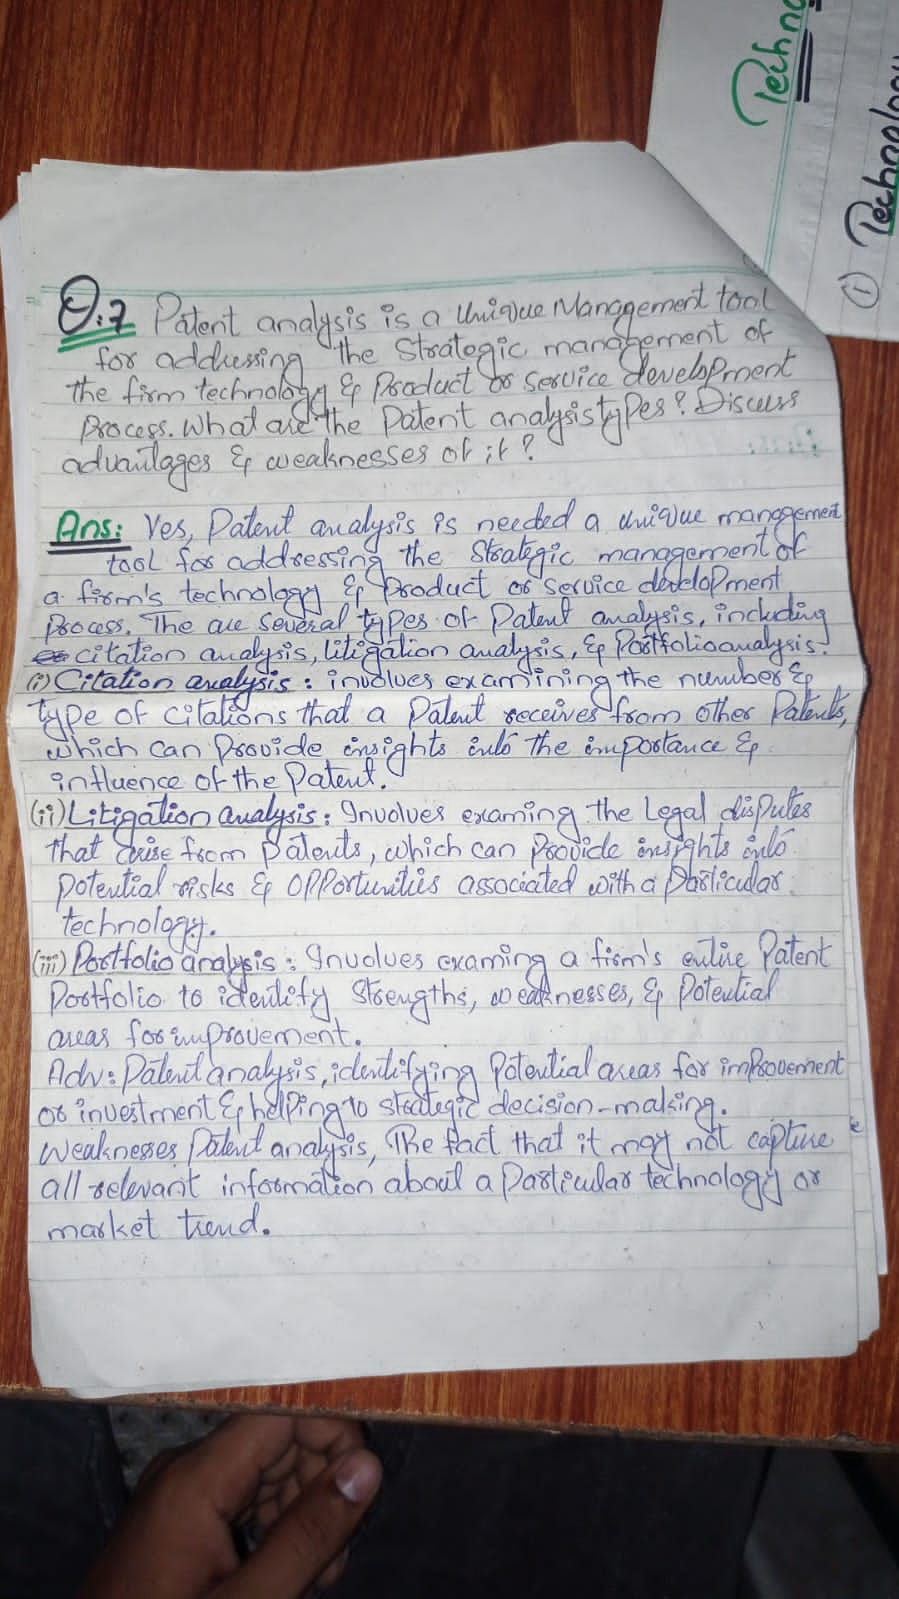 Techno
(i) Technology
Q:7 Patent analysis is a Unique Management tool
for addressing the Strategic management of
the firm technology & Product or service development
Process. What are the Patent analysis types? Discuss
advantages & weaknesses of it?
Ans: Yes, Patent analysis is needed a unique management
tool for addressing the Strategic management of
a firm's technology & Product or service development
Process. The are several types of Patent analysis, including
citation analysis, litigation analysis, & Portfolio analysis.
(i) Citation analysis: involves examining the number &
type of citations that a Patent receives from other Patents,
which can Provide insights into the importance &
influence of the Patent.
(ii) Litigation analysis: Involves examing the Legal disputes
that arise from patents, which can Provide insights into
Potential risks & opportunities associated with a Particular
technology.
(iii) Portfolio analysis: Involves examing a firm's entire Patent
Portfolio to identify Strengths, weaknesses, & Potential
areas for improvement.
Adv: Patent analysis, identifying Potential areas for improvement
or investment & helping to strategic decision-making.
Weaknesses Patent analysis, The fact that it may not capture
all relevant information about a Particular technology or
market trend.